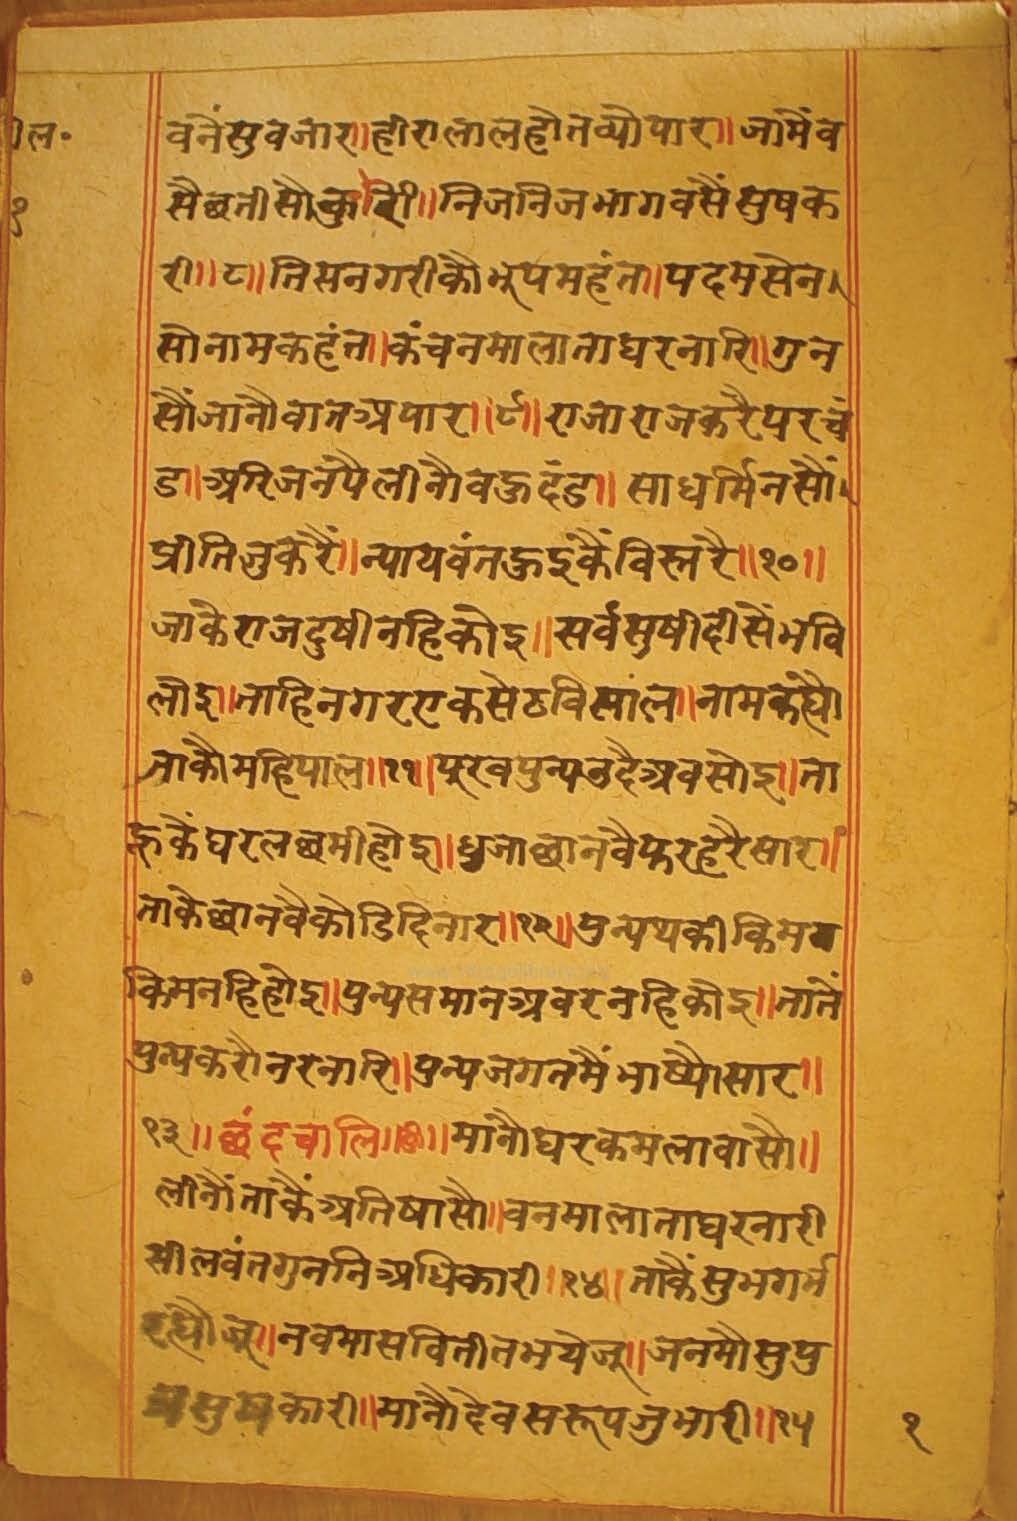 सील॰
१
वनैंसुवजार॥हीरालालहोतव्यौपार॥जामैंव
सैछतीसौकुरी॥निजनिजभागवसैंसुषक
री॥८॥तिसनगरीकौभूपमहंत॥पदमसेन।
सोनामकहंत॥कंचनमालाताघरनारि॥गुन
सौंजानौवातअपार॥९॥राजाराजकरैपरचं
ड॥अरिजनपैलीनौवहुदंड॥साधर्मिनसौं।
प्रीतिजुकरैं॥न्यायवंतहुइकैंविस्तरै॥१०॥
जाकैराजदुषीनहिकोइ॥सर्वसुषीदीसैंभवि
लोइ॥ताहिनगरएकसेठविसाल॥नामकह्यौ
जाकौमहिपाल॥११॥पूरवपुन्यउदैअवसोइ॥ता
हूकैंघरलछमीहोइ॥धुजाछानवैफरहरैसार॥
ताकैछानवैकोडिदिनार॥१२॥पुन्यथकीकिमय
किमनहिहोइ॥पुन्यसमानअवरनहिकोइ॥तातैं
पुन्यकरौनरनारि॥पुन्यजगतमैंभाष्यौसार॥
१३॥छंदचालि॥छ॥मानौघरकमलावासौ॥
लीनौंताकैंअतिषासौ॥वनमालाताघरनारी
सीलवंतगुननिअधिकारी॥१४॥ताकैंसुभगर्भ
रह्यौजू॥नवमासवितीतभयेजू॥जनमौसुपु
त्रसुषकारी॥मानौदेवसरूपजुभारी॥१५
१